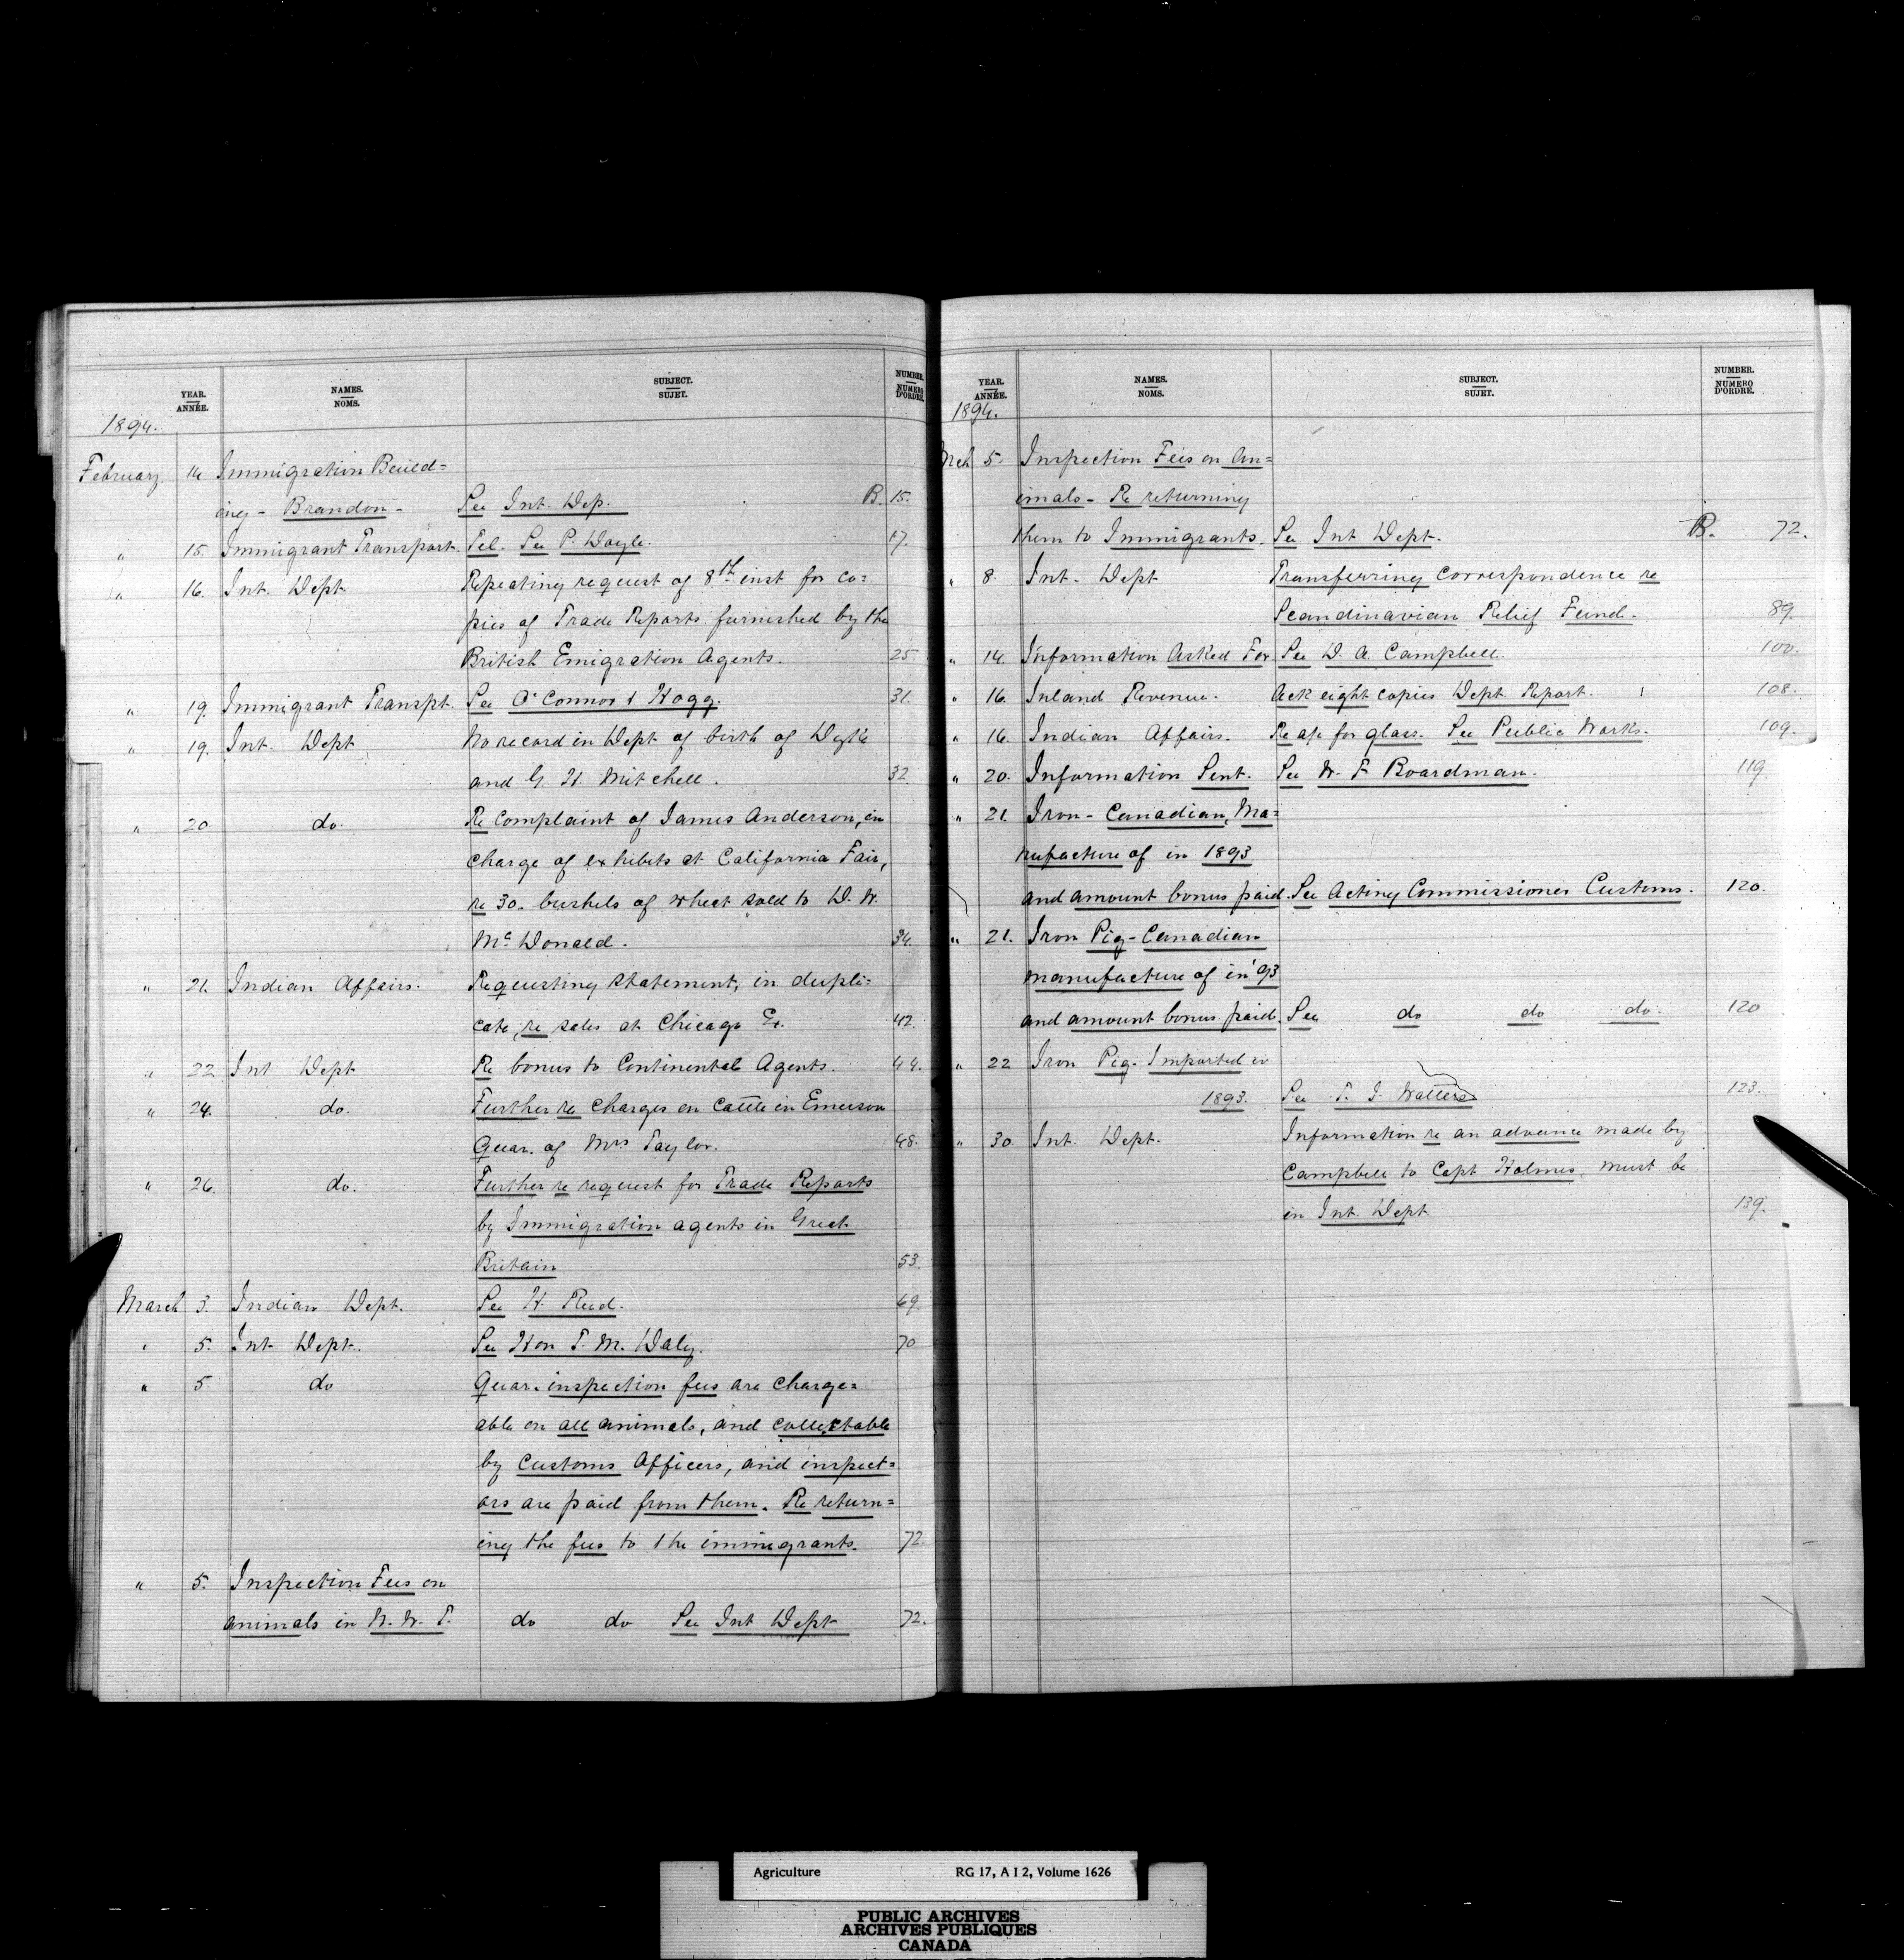 YEAR. NAMES. SUBJECT. NUMBER.
ANNÉE. NOMS. SUJET. NUMERO D'ORDRE.
1894.
February 14 Immigration Build=
ing - Brandon - See Int. Dep. B. 15.
" 15. Immigrant Transport. Tel. See P. Doyle. 17.
" 16. Int. Dept. Repeating request of 8th inst for co=
pies of Trade Reports furnished by the
British Emigration Agents. 25.
" 19. Immigrant Transpt. See O'Connor & Hogg. 31.
" 19. Int. Dept No record in Dept of birth of
and G. H. Mitchell. 32.
" 20. do. Re complaint of James Anderson, in
charge of exhibits at California Fair,
re 30. bushels of wheat sold to D. W.
Mc Donald. 34.
" 21. Indian Affairs. Requesting statement, in dupli=
cate, re sales at Chicago &c. 42.
" 22 Int Dept Re bonus to Continental Agents. 44.
" 24. do. Further re charges on cattle in Emerson
Quar. of Mrs Taylor. 48.
" 26. do. Further re request for Trade Reports
by Immigration agents in Great
Britain 53.
March 3. Indian Dept. See H. Reed. 69.
" 5. Int. Dept. See Hon T. M. Daly. 70
" 5. do Quar. inspection fees are charge=
able on all animals, and collectable
by Customs Officers, and inspect=
ors are paid from them. Re return=
ing the fees to the immigrants. 72.
" 5. Inspection Fees on
animals in N. W. T. do do See Int Dept 72.
YEAR. NAMES. SUBJECT. NUMBER.
ANNÉE. NOMS. SUJET. NUMERO D'ORDRE.
1894.
Mch 5. Inspection Fees on An=
imals - Re returning
them to Immigrants. See Int Dept. B. 72.
" 8. Int. Dept Transferring correspondence re
Scandinavian Relief Fund. 89.
" 14. Information Asked For See D. A. Campbell. 100.
" 16. Inland Revenue. Ack eight copies Dept Report. 108.
" 16. Indian Affairs. Re a/c for glass. See Public Works. 109.
" 20. Information Sent. See W. F Boardman. 119.
" 21. Iron - Canadian, Ma=
nufacture of in 1893
and amount bonus paid. See Acting Commissioner Customs. 120.
" 21. Iron Pig - Canadian
manufacture of in '93
and amount bonus paid. See do do do. 120
" 22 Iron Pig. Imported in
1893. See T. J. Watters 123.
" 30. Int. Dept. Information re an advance made by
Campbell to Capt Holmes, must be
in Int Dept 139.
Agriculture RG 17, A I 2, Volume 1626
PUBLIC ARCHIVES
ARCHIVES PUBLIQUES
CANADA